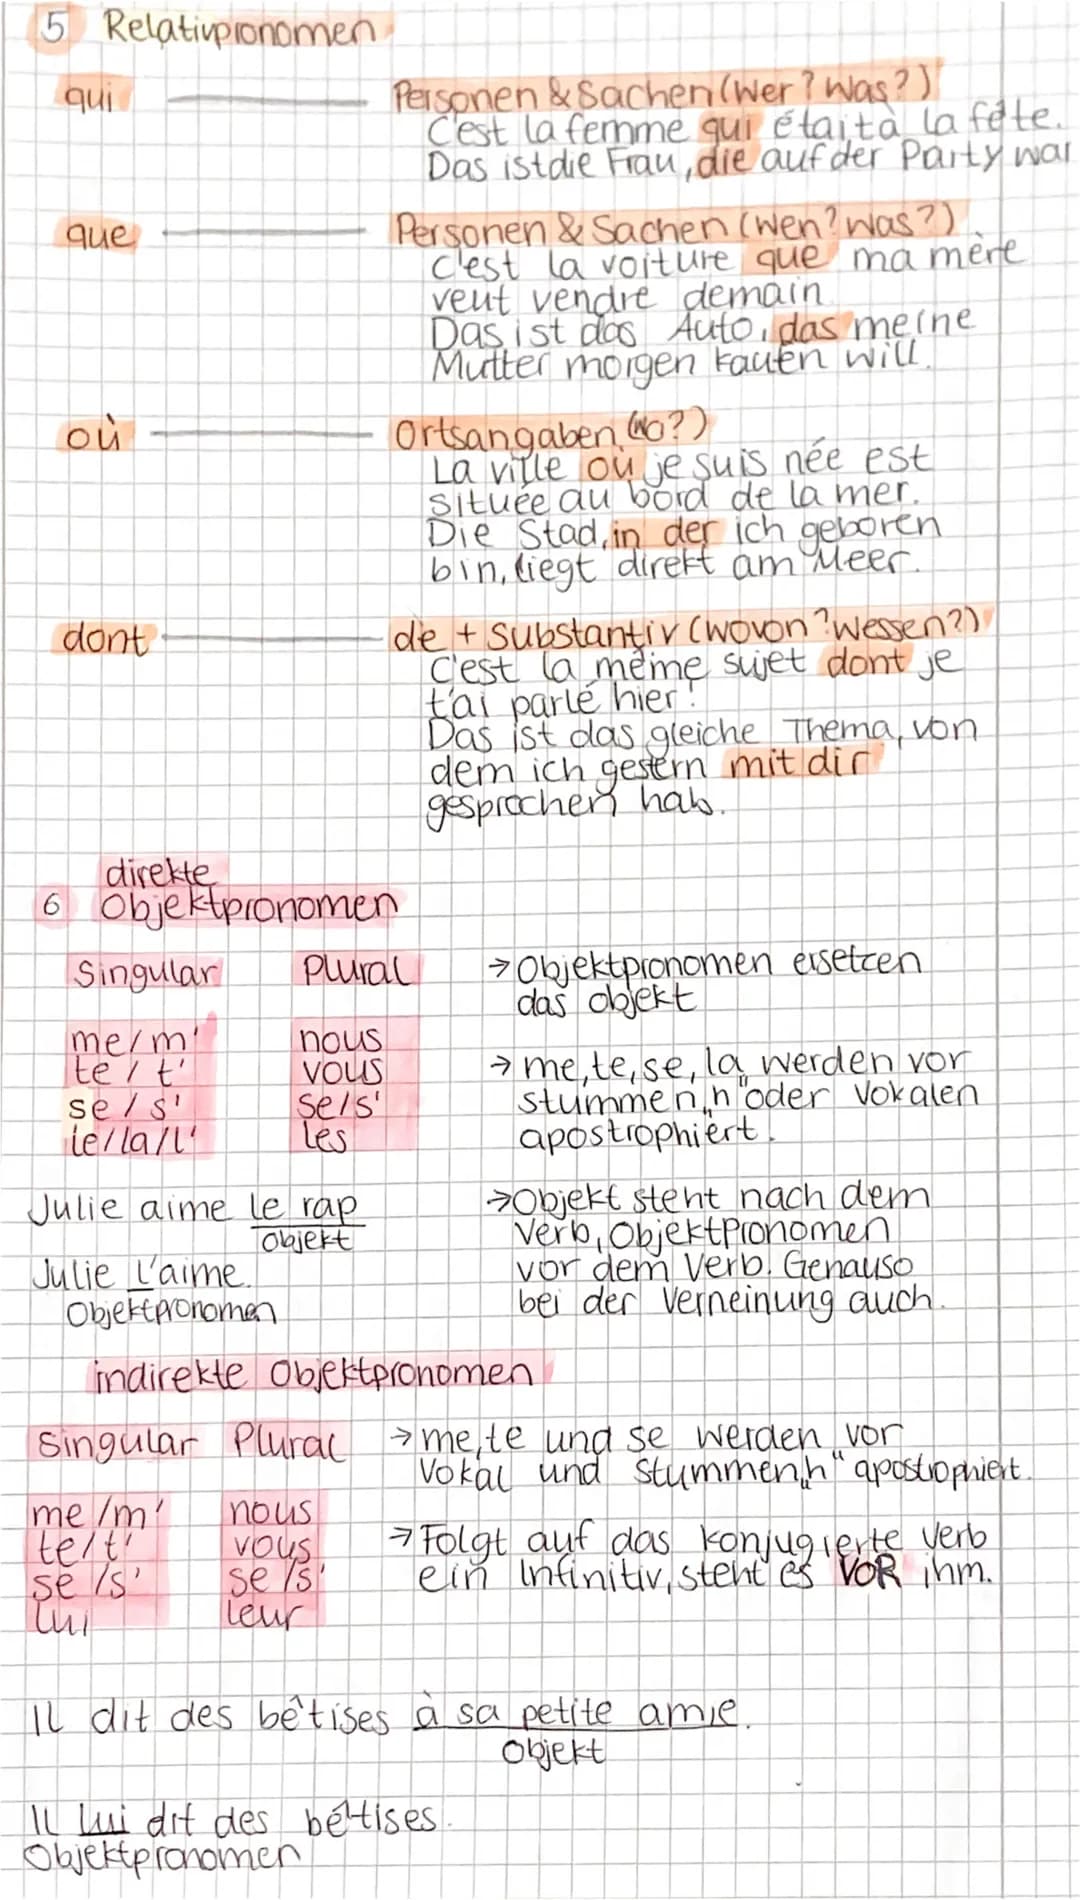 5 Relativpronomen
qui Personen & Sachen (Wer? Was?)
C'est la femme qui était à la fête.
Das ist die Frau, die auf der Party war
que Personen & Sachen (Wen? Was?)
c'est la voiture que ma mère
veut vendre demain
Das ist das Auto, das meine
Mutter morgen kaufen will.
où Ortsangaben (Wo?)
La ville où je suis née est
située au bord de la mer.
Die Stad, in der ich geboren
bin, liegt direkt am Meer.
dont de + Substantiv (wovon? wessen?)
C'est la même sujet dont je
t'ai parlé hier!
Das ist das gleiche Thema, von
dem ich gestern mit dir
gesprochen hab.
direkte
6 Objektpronomen
Singular Plural → Objektpronomen ersetzen
das objekt
me/m' nous
te / t' vous → me, te, se, la werden vor
se / s' se/s' stummen „h" oder Vokalen
le/la/l' les apostrophiert.
Julie aime le rap → Objekt steht nach dem
Objekt Verb, Objektpronomen
Julie l'aime. vor dem Verb. Genauso
Objektpronomen bei der Verneinung auch.
indirekte Objektpronomen
Singular Plural → me, te und se werden vor
Vokal und Stummen „h" apostrophiert.
me /m' nous
te/t' vous → Folgt auf das konjugierte Verb
se /s' se /s' ein Infinitiv, steht es VOR ihm.
lui leur
Il dit des bêtises à sa petite amie.
Objekt
Il lui dit des bêtises.
Objektpronomen